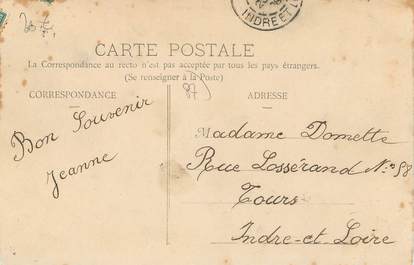 INDRE ET
CARTE POSTALE
La Correspondance au recto n'est pas acceptée par tous les pays étrangers.
(Se renseigner à la Poste)
CORRESPONDANCE
87
ADRESSE
Bon Souvenir
Jeanne
Madame Domette
Rue Losserand No 58
Tours
Indre-et Loire